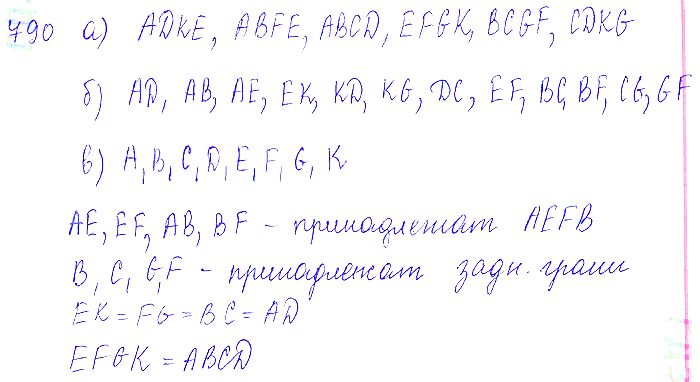 790 а) ADKE, ABFE, ABCD, EFGK, BCGF, CDKG
б) AD, AB, AE, EK, KD, KG, DC, EF, BC, BF, CG, GF
в) A, B, C, D, E, F, G, K
AE, EF, AB, BF - принадлежат AEFB
B, C, G, F - принадлежат задн. грани
EK = FG = BC = AD
EFGK = ABCD